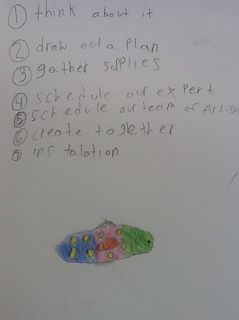 ① think about it
② draw out a plan
③ gather supplies
④ schedule our expert
⑤ schedule our team of Art
⑥ create together
⑦ instalation